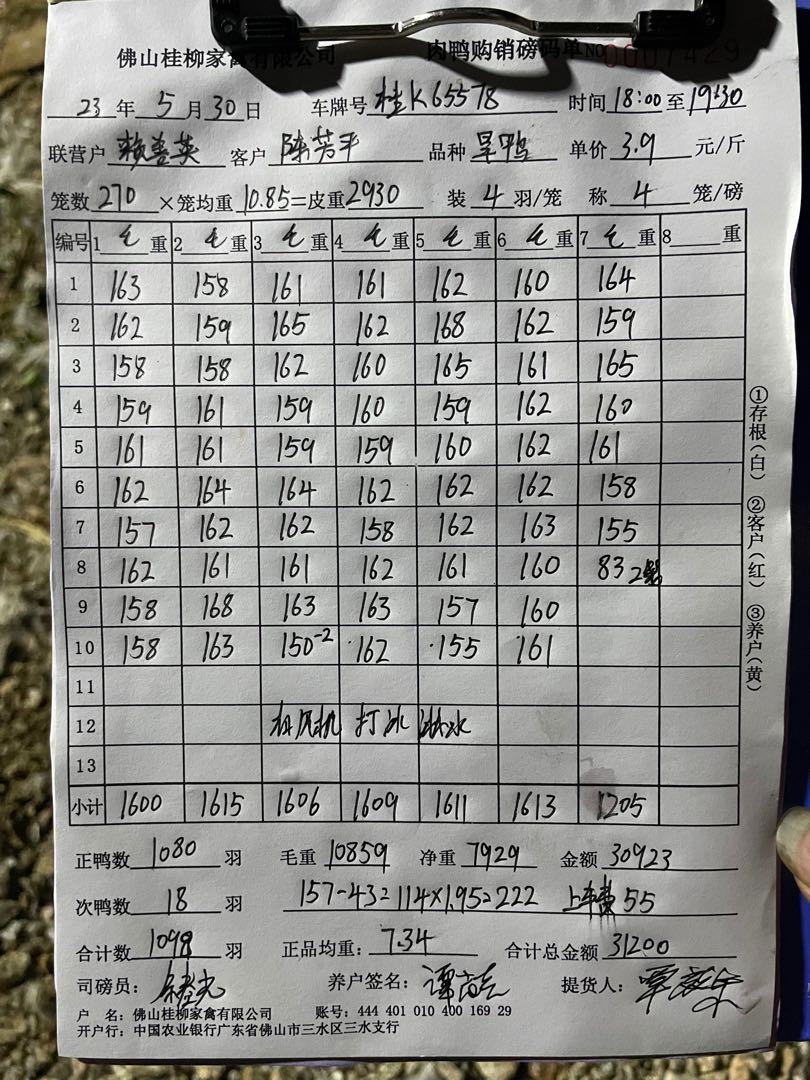 佛山桂柳家禽有限公司 肉鸭购销磅码单NO 0007429
23 年 5 月 30 日 车牌号 桂K65578 时间 18:00 至 19:30
联营户 赖善英 客户 陈芳平 品种 旱鸭 单价 3.9 元/斤
笼数 270 ×笼均重 10.85 =皮重 2930 装 4 羽/笼 称 4 笼/磅
编号 1 毛 重 2 毛 重 3 毛 重 4 毛 重 5 毛 重 6 毛 重 7 毛 重 8 重
1 163 158 161 161 162 160 164
2 162 159 165 162 168 162 159
3 158 158 162 160 165 161 165
4 159 161 159 160 159 162 160
5 161 161 159 159 160 162 161
6 162 164 164 162 162 162 158
7 157 162 162 158 162 163 155
8 162 161 161 162 161 160 83
9 158 168 163 163 157 160
10 158 163 150-2 162 155 161
11
12 风机 打冰 淋水
13
小计 1600 1615 1606 1609 1611 1613 1205
正鸭数 1080 羽 毛重 10859 净重 7929 金额 30923
次鸭数 18 羽 157-43=114×1.95=222 上车费 55
合计数 1098 羽 正品均重: 7.34 合计总金额 31200
司磅员: 养户签名: 提货人:
户 名: 佛山桂柳家禽有限公司 账号: 444 401 010 400 169 29
开户行: 中国农业银行广东省佛山市三水区三水支行
①存根(白) ②客户(红) ③养户(黄)